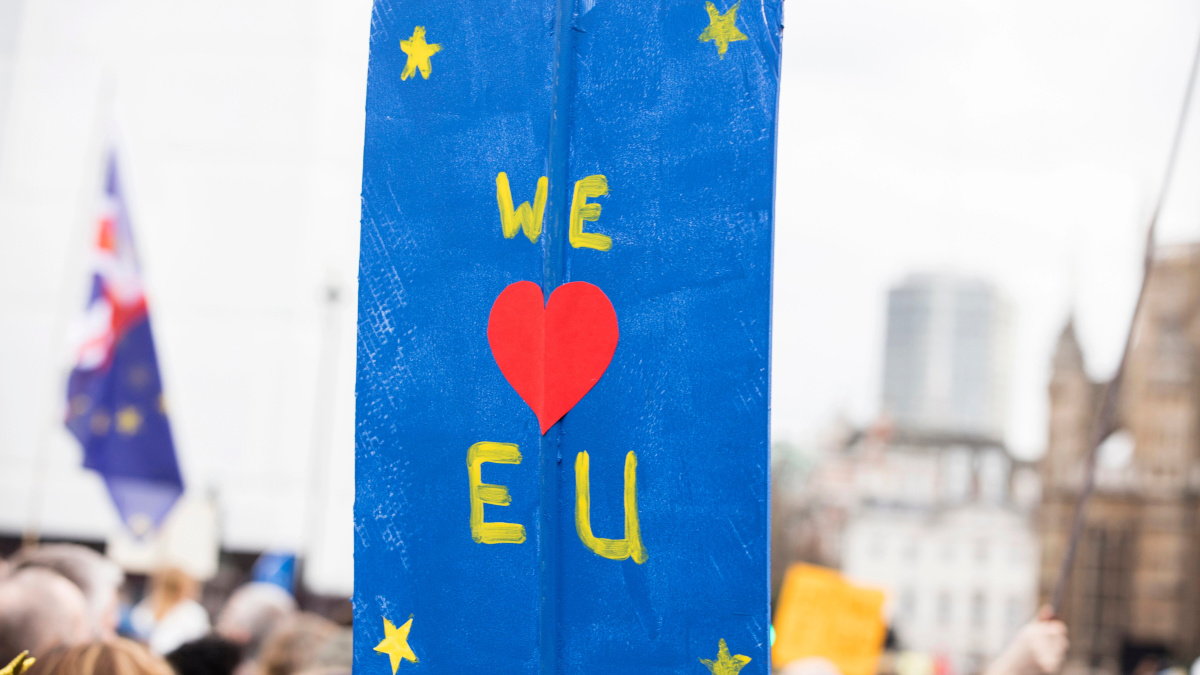 WE
EU